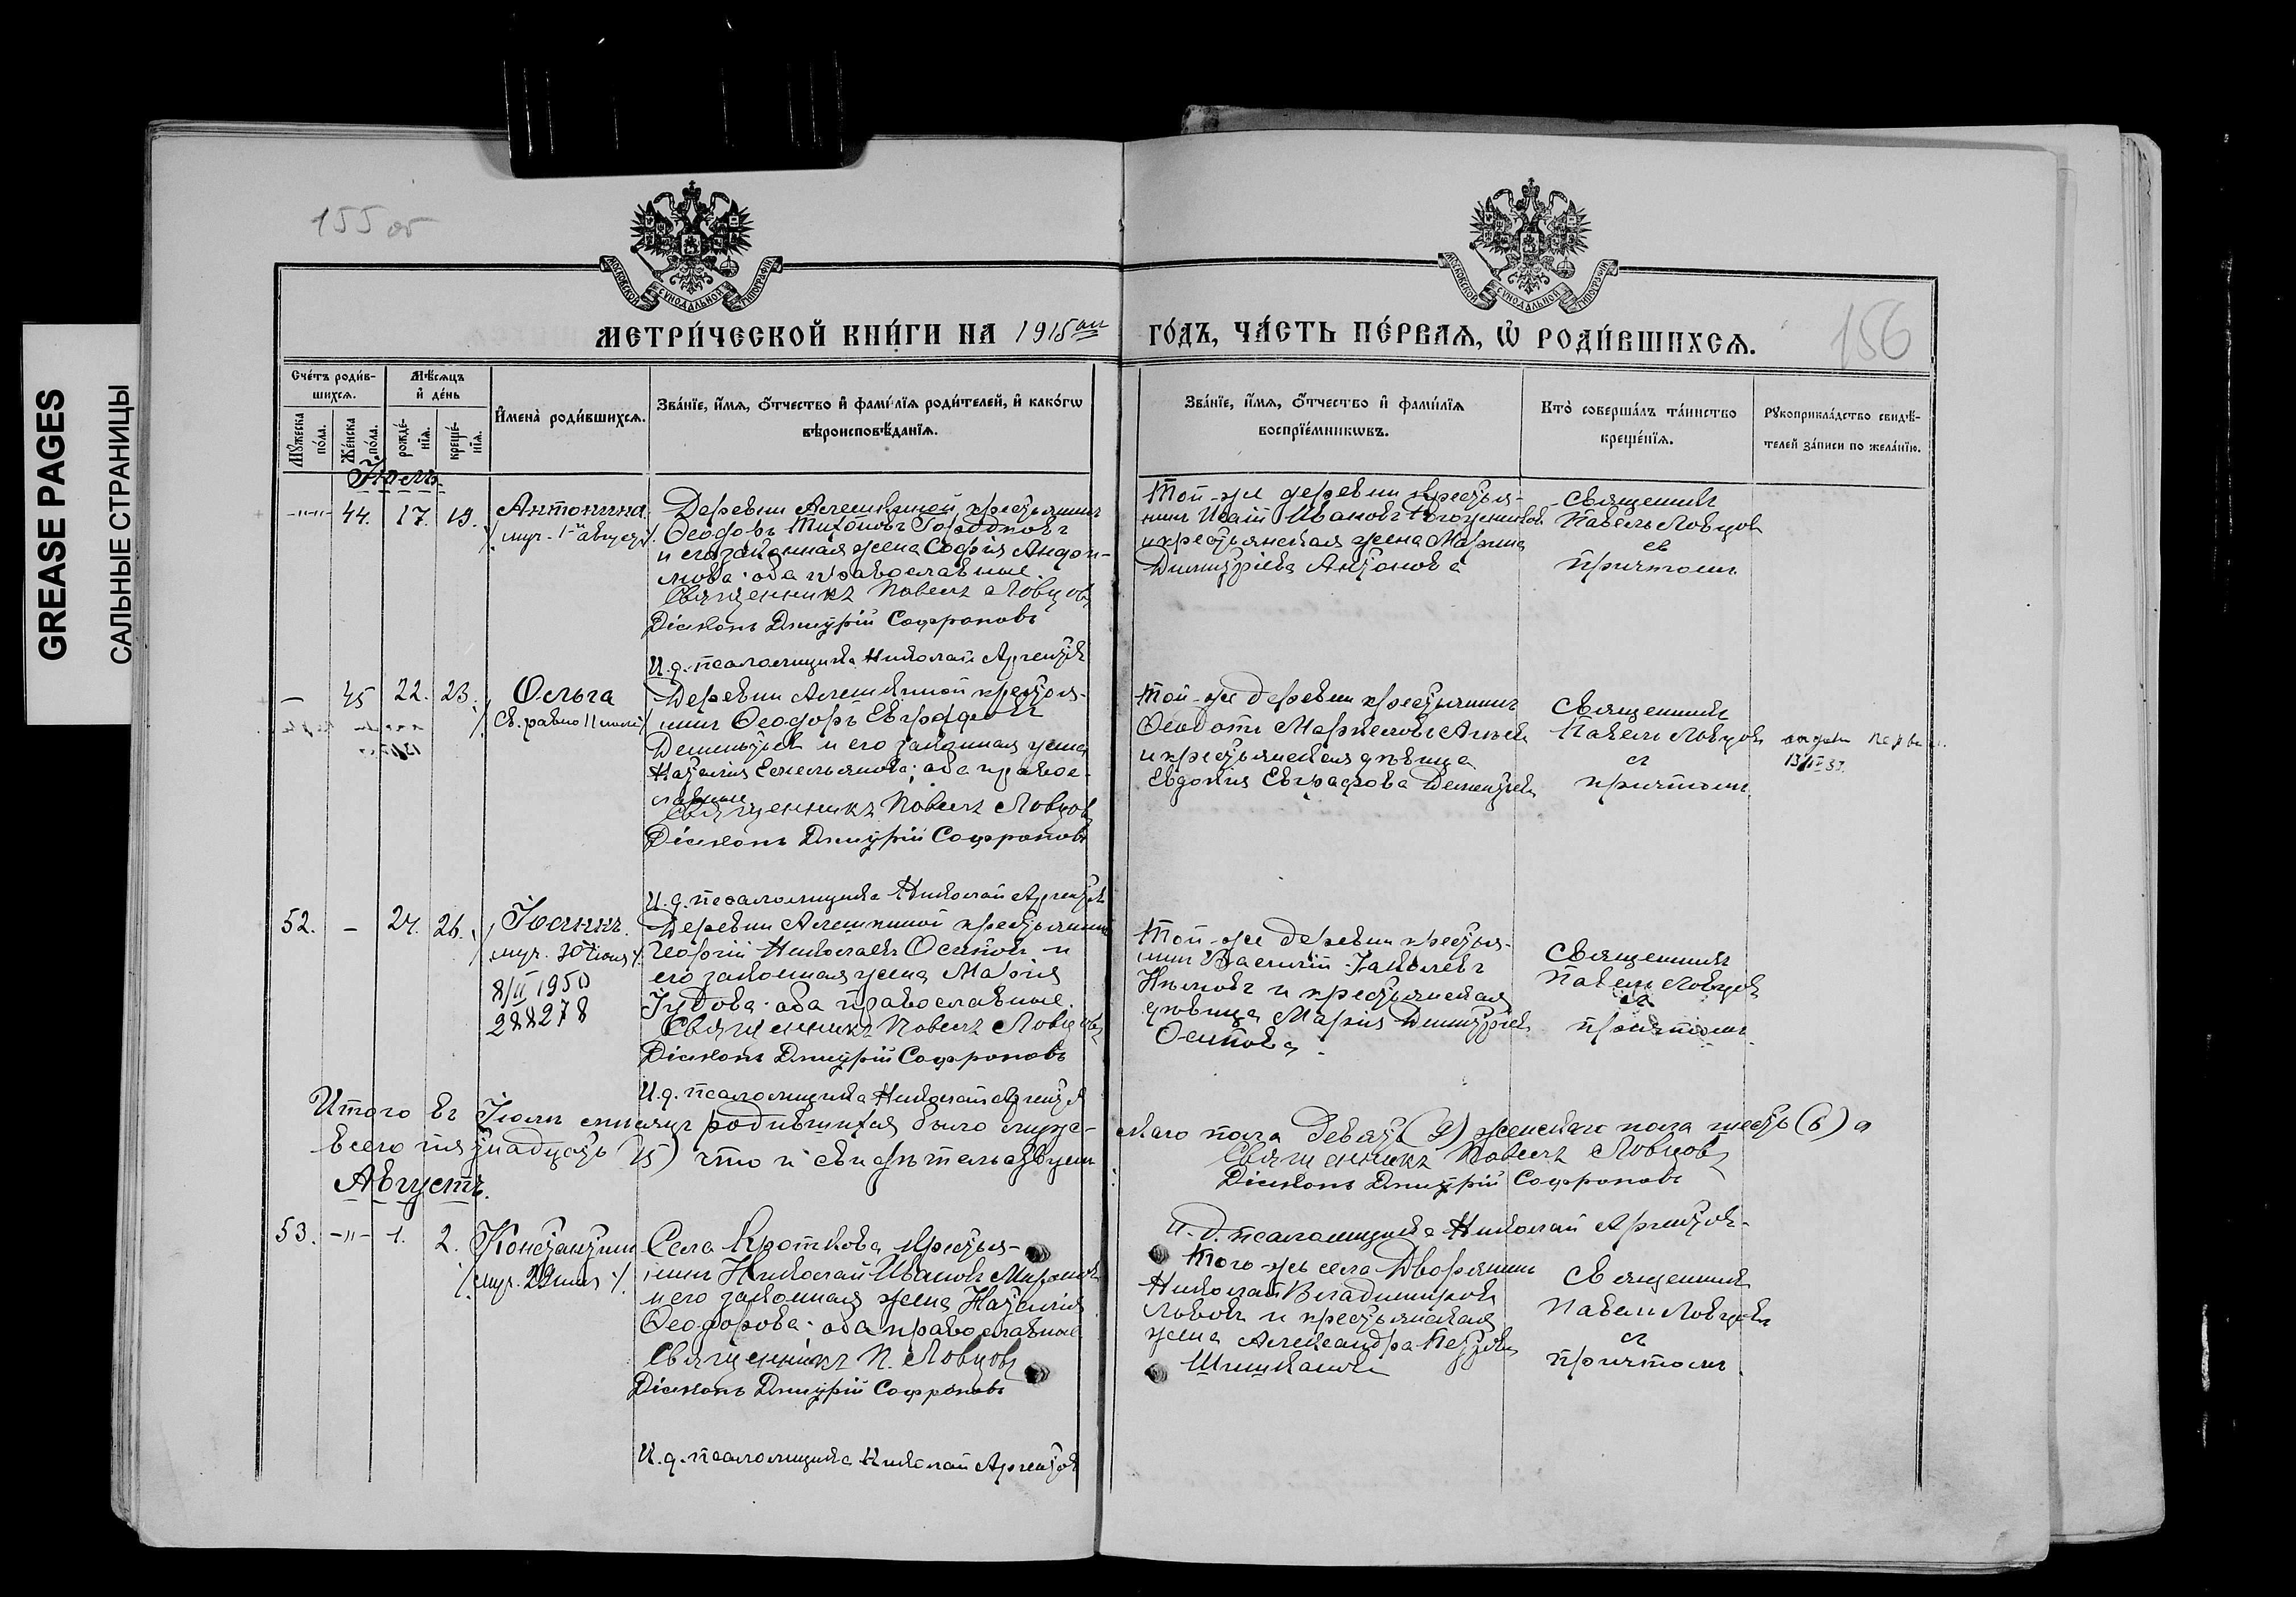 GREASE PAGES
САЛЬНЫЕ СТРАНИЦЫ
155 об
156
МОСКОВСКОЙ СѴНОДАЛЬНОЙ ТИПОГРАФІИ
МОСКОВСКОЙ СѴНОДАЛЬНОЙ ТИПОГРАФІИ
МЕТРИ́ЧЕСКОЙ КНИ́ГИ НА 1915ый ГО́ДЪ, ЧА́СТЬ ПЕ́РВАѦ, Ѡ҆ РОДИ́ВШИХСѦ.
Сче́тъ роди́в-
шихсѧ.
Мѣ́сѧцъ
и҆ де́нь
Мꙋ́жеска
по́ла.
Же́нска
по́ла.
рожде́-
нїѧ.
креще́-
нїѧ.
И҆мена̀ роди́вшихсѧ.
Зва́нїе, и҆́мѧ, ѻ҆́тчество и҆ фами́лїѧ роди́телей, и҆ како́гѡ
вѣроисповѣ́данїѧ.
Зва́нїе, и҆́мѧ, ѻ҆́тчество и҆ фами́лїѧ
воспрїе́мникѡвъ.
Кто̀ соверша́лъ та́инство
креще́нїѧ.
Рꙋкоприкла́дство свидѣ́-
телей за́писи по жела́нїю.
Іюль
-"-"- 44. 17. 19. Антонина
муч. 1го августа
Деревни Алешкиной крестьянинъ
Ѳеодоръ Тихоновъ
и его законная жена Софія
оба православные.
Священникъ Павелъ Ловцовъ
Діаконъ Димитрій Софроновъ
И.д. псаломщика Николай
Той-же деревни крестья-
нинъ Ивановъ
и крестьянская жена Марина
Димитріева Антонова
Священникъ
Павелъ Ловцовъ
съ
причтомъ
— 45 22. 23. Ольга
св. равно 11 іюля
Деревни Алешкиной крестья-
нинъ Ѳеодоръ Евграфовъ
Дементьевъ и его законная жена
Наталія Емельянова; оба правос-
лавные
Священникъ Павелъ Ловцовъ
Діаконъ Димитрій Софроновъ
И.д. псаломщика Николай
Той-же деревни крестьянинъ
Ѳеодотъ
и крестьянская дѣвица
Евдокія Евграфова Дементьева
Священникъ
Павелъ Ловцовъ
съ
причтомъ
13/IV 37.
52. — 24. 26. Іоаннъ
муч. 30 іюля
8/II 1950
288278
Деревни Алешкиной крестьянинъ
Георгій Николаевъ Осиповъ и
его законная жена Марія
Іудова; оба православные.
Священникъ Павелъ Ловцовъ
Діаконъ Димитрій Софроновъ
И.д. псаломщика Николай
Той-же деревни крестья-
нинъ Василій Іаковлевъ
и крестьянская
дѣвица Марія Димитріева
Осипова.
Священникъ
Павелъ Ловцовъ
съ
причтомъ
Итого въ Іюлѣ мѣсяцѣ родившихся было муже-
скаго пола девять (9) женскаго пола шесть (6) а
всего пятнадцать (15) что и свидѣтельствуемъ:
Священникъ Павелъ Ловцовъ
Діаконъ Димитрій Софроновъ
И.д. псаломщика Николай
Августъ.
53. -"- 1. 2. Константинъ
муч. 29 іюля
Села Кроткова крестья-
нинъ Николай Ивановъ
и его законная жена Наталія
Ѳеодорова; оба православные
Священникъ П. Ловцовъ
Діаконъ Димитрій Софроновъ
И.д. псаломщика Николай
Того-же села Дворянинъ
Николай Владимировъ
Львовъ и крестьянская
жена Александра Петрова
Священникъ
Павелъ Ловцовъ
съ
причтомъ